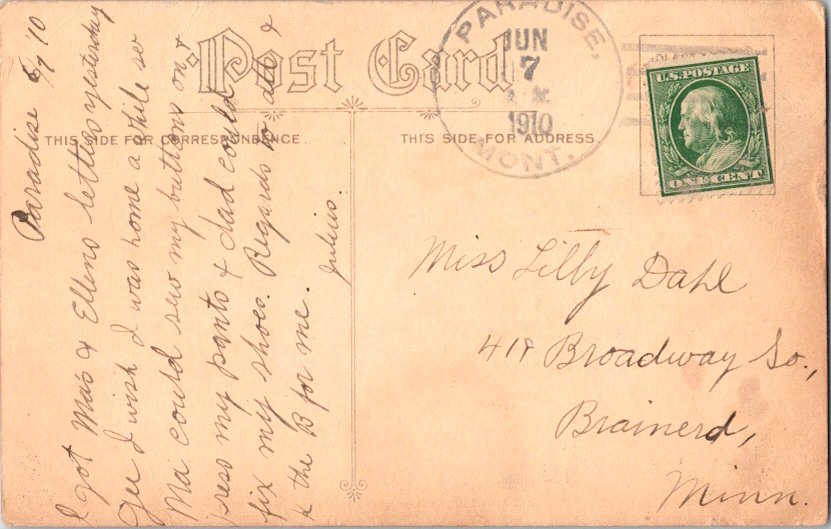 Post Card
PARADISE,
JUN
7
1910
MONT.
U.S. POSTAGE
ONE CENT
THIS SIDE FOR CORRESPONDENCE.
THIS SIDE FOR ADDRESS.
Paradise 6/7 10
I got Ma's & Ellens letters yesterday
Gee I wish I was home a while so
Ma could sew my buttons on &
press my pants & dad could
fix my shoes. Regards to all &
& the B for me.
Julius.
Miss Lilly Dahl
418 Broadway So.,
Brainerd,
Minn.